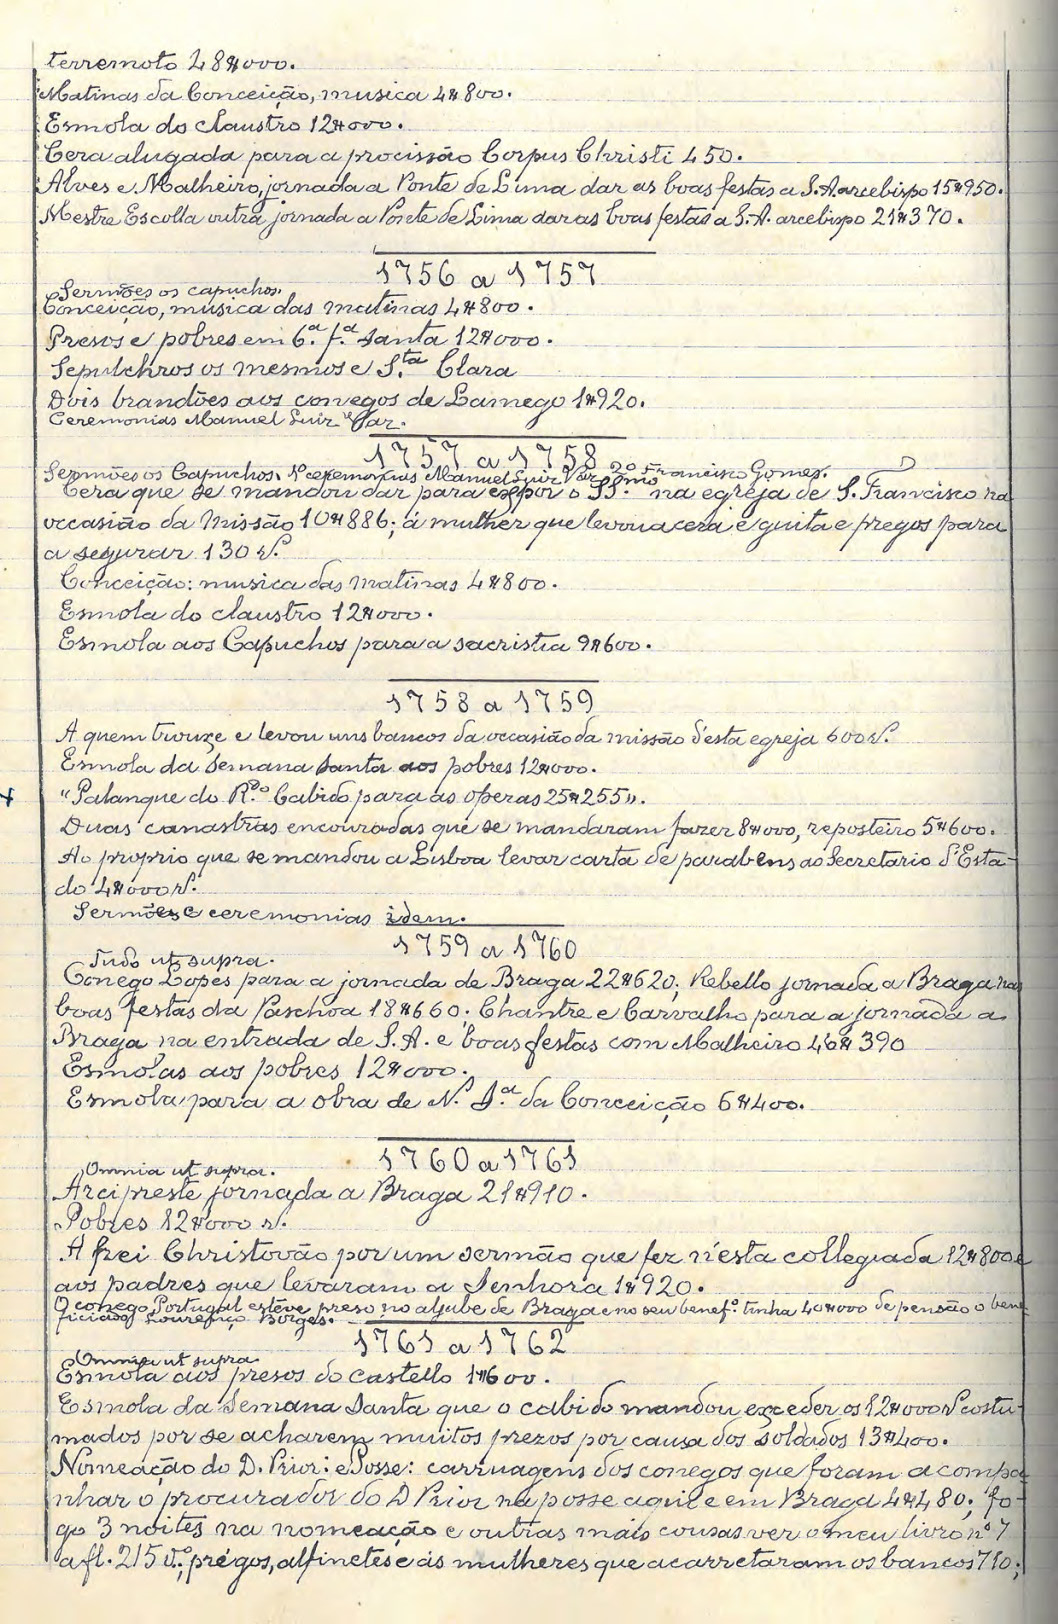 terremoto 48$000.
Matinas da Conceição, musica 4$800.
Esmola do claustro 12$000.
Cera alugada para a procissão Corpus Christi 450.
Alves e Malheiro, jornada a Ponte de Lima dar as boas festas a S. A. arcebispo 15$950.
Mestre Escolla outra jornada a Ponte de Lima dar as boas festas a S. A. arcebispo 21$370.
1756 a 1757
Sermões os capuchos.
Conceição, musica das matinas 4$800.
Presos e pobres em 6.ª f.ª santa 12$000.
Sepulchros os mesmos e S.ta Clara
Dois brandões aos conegos de Lamego 1$920.
Ceremonias Manuel Luiz Vaz.
1757 a 1758
Sermões os Capuchos. 1º ceremonias Manuel Luiz Vaz 2º Francisco Gomes.
Cera que se mandou dar para expôr o SS.mo na egreja de S. Francisco na
occasião da Missão 10$886; á mulher que levou a cera e guita e pregos para
a segurar 130 rs.
Conceição: musica das matinas 4$800.
Esmola do claustro 12$000.
Esmola aos Capuchos para a sacristia 9$600.
1758 a 1759
A quem trouxe e levou uns bancos da occasião da missão d'esta egreja 600 rs.
Esmola da Semana Santa aos pobres 12$000.
"Palanque do R.do Cabido para as operas 25$255".
Duas canastras encouradas que se mandaram fazer 8$000, reposteiro 5$600.
Ao proprio que se mandou a Lisboa levar carta de parabens ao Secretario d'Esta-
do 4$000 rs.
Sermões e ceremonias idem.
1759 a 1760
Tudo ut supra.
Conego Lopes para a jornada de Braga 22$620; Rebello jornada a Braga nas
boas festas da Paschoa 18$660; Chantre e Carvalho para a jornada a
Braga na entrada de S. A. e boas festas com Malheiro 46$390
Esmolas aos pobres 12$000.
Esmola para a obra de N.ª S.ª da Conceição 6$400.
1760 a 1761
Omnia ut supra.
Arcipreste jornada a Braga 21$910.
Pobres 12$000 rs.
A frei Christovão por um sermão que fez n'esta collegiada 12$800 e
aos padres que levaram a Senhora 1$920.
O conego Portugal estêve preso no aljube de Braga e no seu benef.º tinha 40$000 de pensão o bene-
ficiado Lourenço Borges.
1761 a 1762
Omnia ut supra
Esmola aos presos do castello 1$600.
Esmola da Semana Santa que o cabido mandou exceder os 12$000 rs costu-
mados por se acharem muitos prezos por causa dos soldados 13$400.
Nomeação do D. Prior: e Posse: carruagens dos conegos que foram acompa-
nhar o procurador do D Prior na posse aqui e em Braga 4$480; fo-
go 3 noites na nomeação e outras mais cousas ver o meu livro nº 7
a fl. 215 v.º; prégos, alfinetes e ás mulheres que acarretaram os bancos 710;